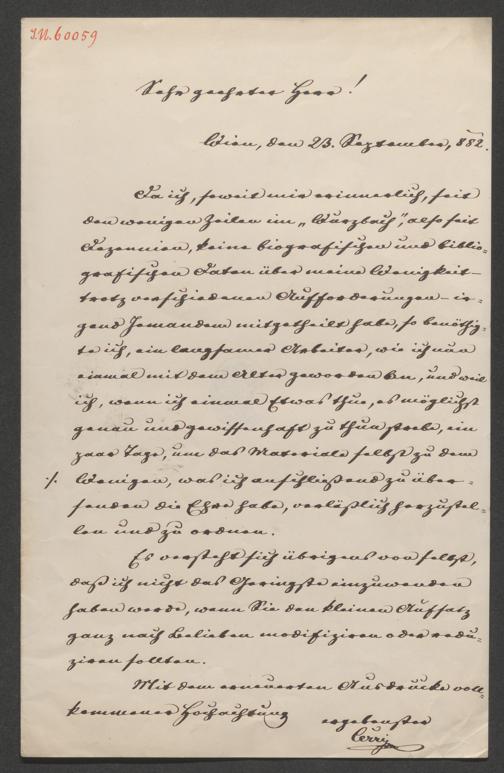 I.N. 60059
Sehr geehrter Herr!
Wien, den 23. September, 882.
Da ich, soweit mir erinnerlich, seit
den wenigen Zeilen im „Wurzbach“, also seit
Dezennien, keine biografischen und biblio-
grafischen Daten über meine Wenigkeit –
trotz verschiedenen Aufforderungen – ir-
gend Jemandem mitgetheilt habe, so benöthig-
te ich, ein langsamer Arbeiter, wie ich nun
einmal mit dem Alter geworden bin, und weil
ich, wenn ich einmal Etwas thue, es möglichst
genau und gewissenhaft zu thun strebe, ein
paar Tage, um das Materiale selbst zu dem
./. Wenigen, was ich anschließend zu über-
senden die Ehre habe, verläßlich herzustel-
len und zu ordnen.
Es versteht sich übrigens von selbst,
daß ich nicht das Geringste einzuwenden
haben werde, wenn Sie den kleinen Aufsatz
ganz nach Belieben modifiziren oder redu-
ziren sollten.
Mit dem erneuerten Ausdrucke voll-
kommener Hochachtung
ergebenster
Cerri